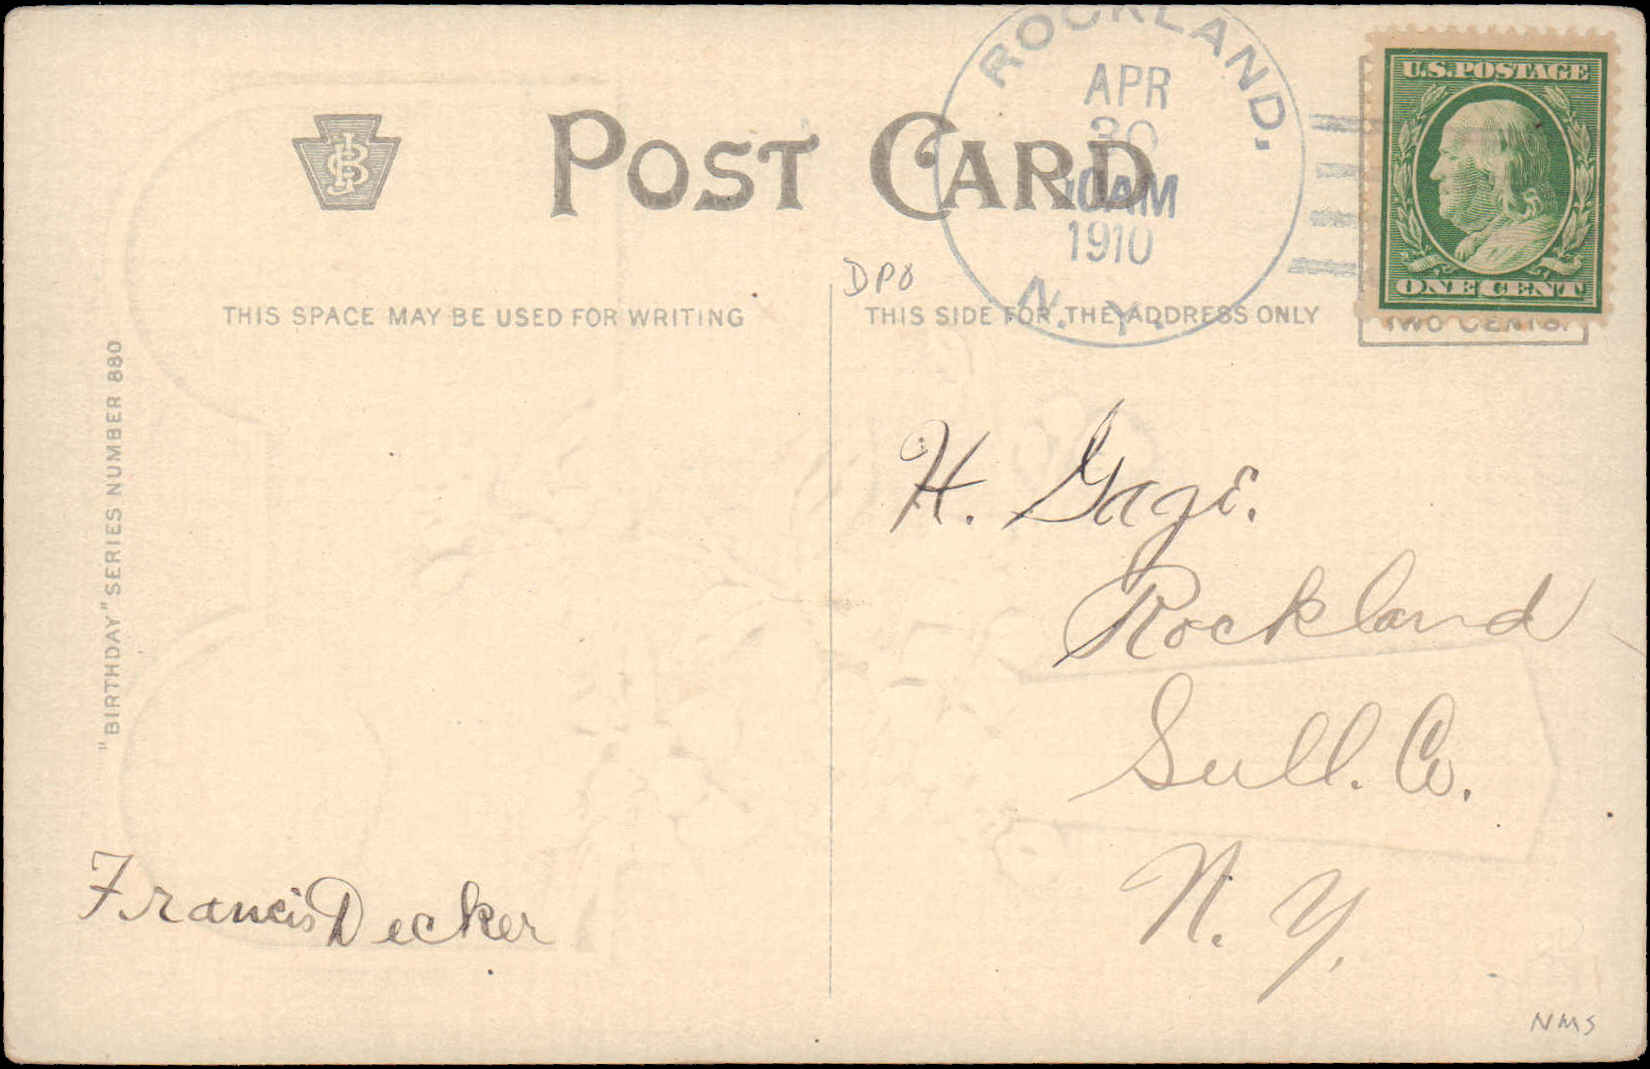 ROCKLAND,
APR
30
10AM
1910
N. Y.
U.S. POSTAGE
ONE CENT
TWO CENTS.
POST CARD
DPO
THIS SPACE MAY BE USED FOR WRITING
THIS SIDE FOR THE ADDRESS ONLY
"BIRTHDAY" SERIES NUMBER 880
H. Gage.
Rockland
Sull. Co.
N. Y.
Francis Decker
NMS